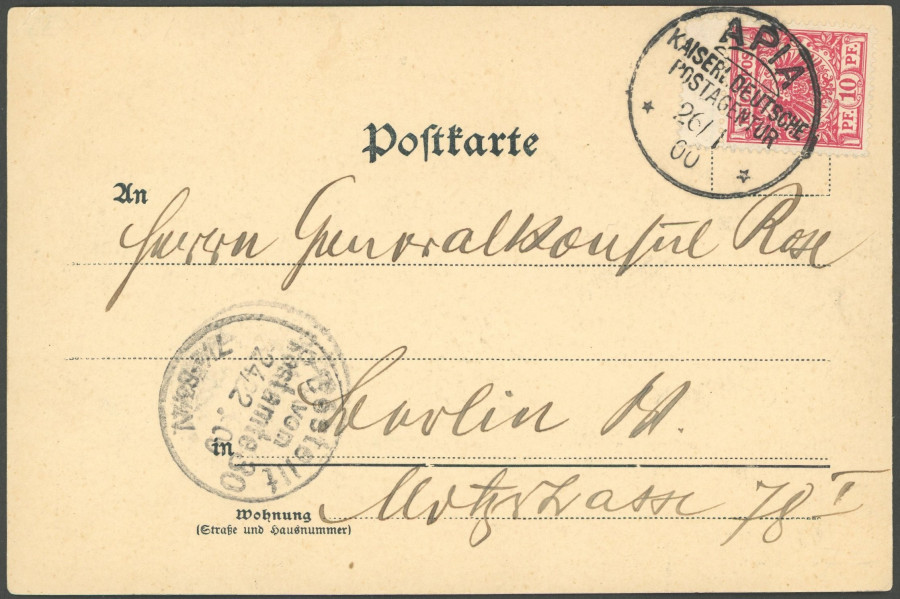 APIA
KAISERL. DEUTSCHE
POSTAGENTUR
26/1
00
10 PF.
PF. 10
Postkarte
An
Herrn Generalkonsul Rose
Bestellt
vom
Postamte 30
24/2. 00
7½-8¾N
Berlin W.
in
Motzstrasse 78 I
Wohnung
(Straße und Hausnummer)